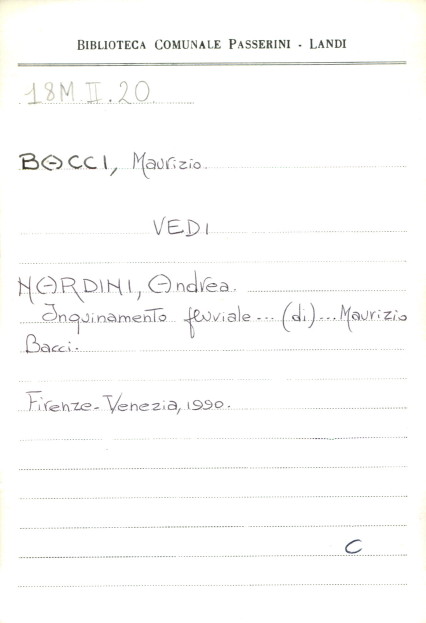 BIBLIOTECA COMUNALE PASSERINI - LANDI
18M II. 20
BACCI, Maurizio.
VEDI
NARDINI, Andrea.
Inquinamento fluviale ... (di) ... Maurizio
Bacci.
Firenze - Venezia, 1990.
C